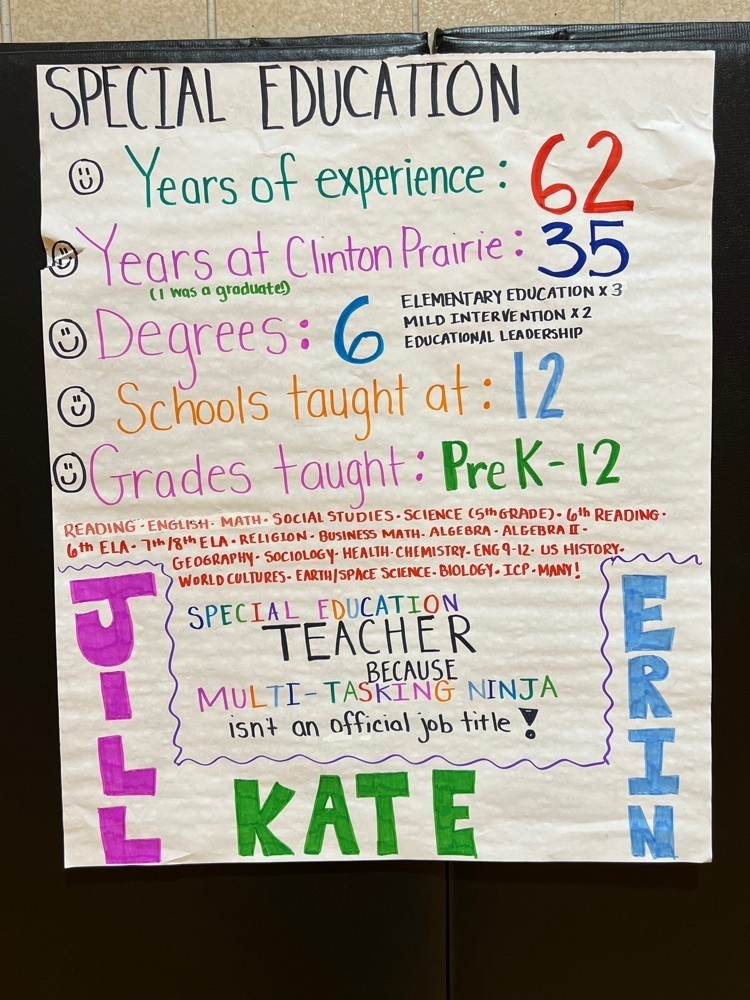 SPECIAL EDUCATION
Years of experience: 62
Years at Clinton Prairie: 35
(I was a graduate!)
Degrees: 6
ELEMENTARY EDUCATION x 3
MILD INTERVENTION x 2
EDUCATIONAL LEADERSHIP
Schools taught at: 12
Grades taught: PreK-12
READING · ENGLISH · MATH · SOCIAL STUDIES · SCIENCE (5th GRADE) · 6th READING ·
6th ELA · 7th/8th ELA · RELIGION · BUSINESS MATH · ALGEBRA · ALGEBRA II ·
GEOGRAPHY · SOCIOLOGY · HEALTH · CHEMISTRY · ENG 9-12 · US HISTORY ·
WORLD CULTURES · EARTH/SPACE SCIENCE · BIOLOGY · ICP · MANY!
SPECIAL EDUCATION
TEACHER
BECAUSE
MULTI-TASKING NINJA
isn't an official job title!
JILL
KATE
ERIN